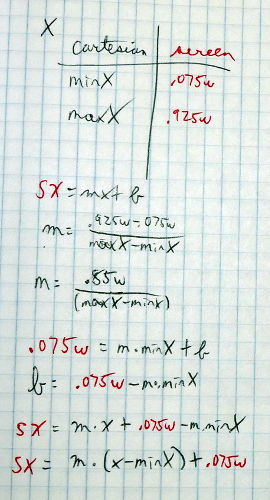 X
cartesian screen
minX .075w
maxX .925w
SX = mx + b
m = .925w - .075w / maxX - minX
m = .85w / (maxX - minX)
.075w = m·minX + b
b = .075w - m·minX
SX = m·x + .075w - m·minX
SX = m·(x - minX) + .075w